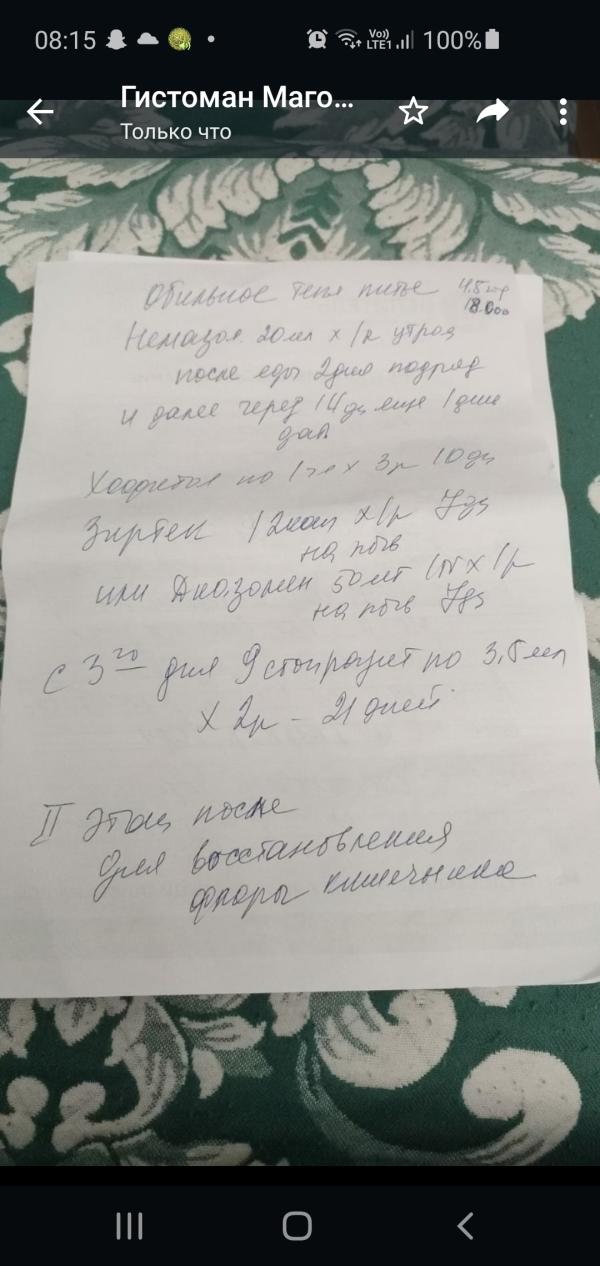 08:15
Vo))
LTE1
100%
Гистоман Маго...
Только что
Обильное тепл питье
18.000
Немазол 20мл х 1р утром
после еды 2 дня подряд
и далее через 14дн еще 1 день
дать
по 1 х 3р 10дн
Зиртек 12кап х 1р 7дн
на ночь
или 50мг 1т х 1р
на ночь 7дн
с 3го дня по 3,5мл
х 2р - 21 дней
II Этап после
для восстановления
флоры кишечника